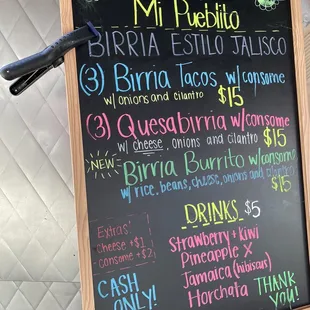 Mi Pueblito
BIRRIA ESTILO JALISCO
(3) Birria Tacos w/consome
w/onions and cilantro $15
(3) Quesabirria w/consome
w/ cheese, onions and cilantro $15
NEW Birria Burrito w/consome
w/ rice, beans, cheese, onions and
$15
DRINKS $5
Strawberry + Kiwi
Pineapple X
Jamaica (hibiscus)
Horchata
Extras:
cheese +$1
consome +$2
CASH
ONLY!
THANK
YOU!